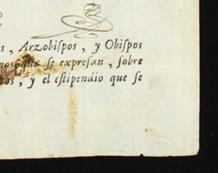 s, Arzobispos, y Obispos
nos que se expresan, sobre
os, y el estipendio que se